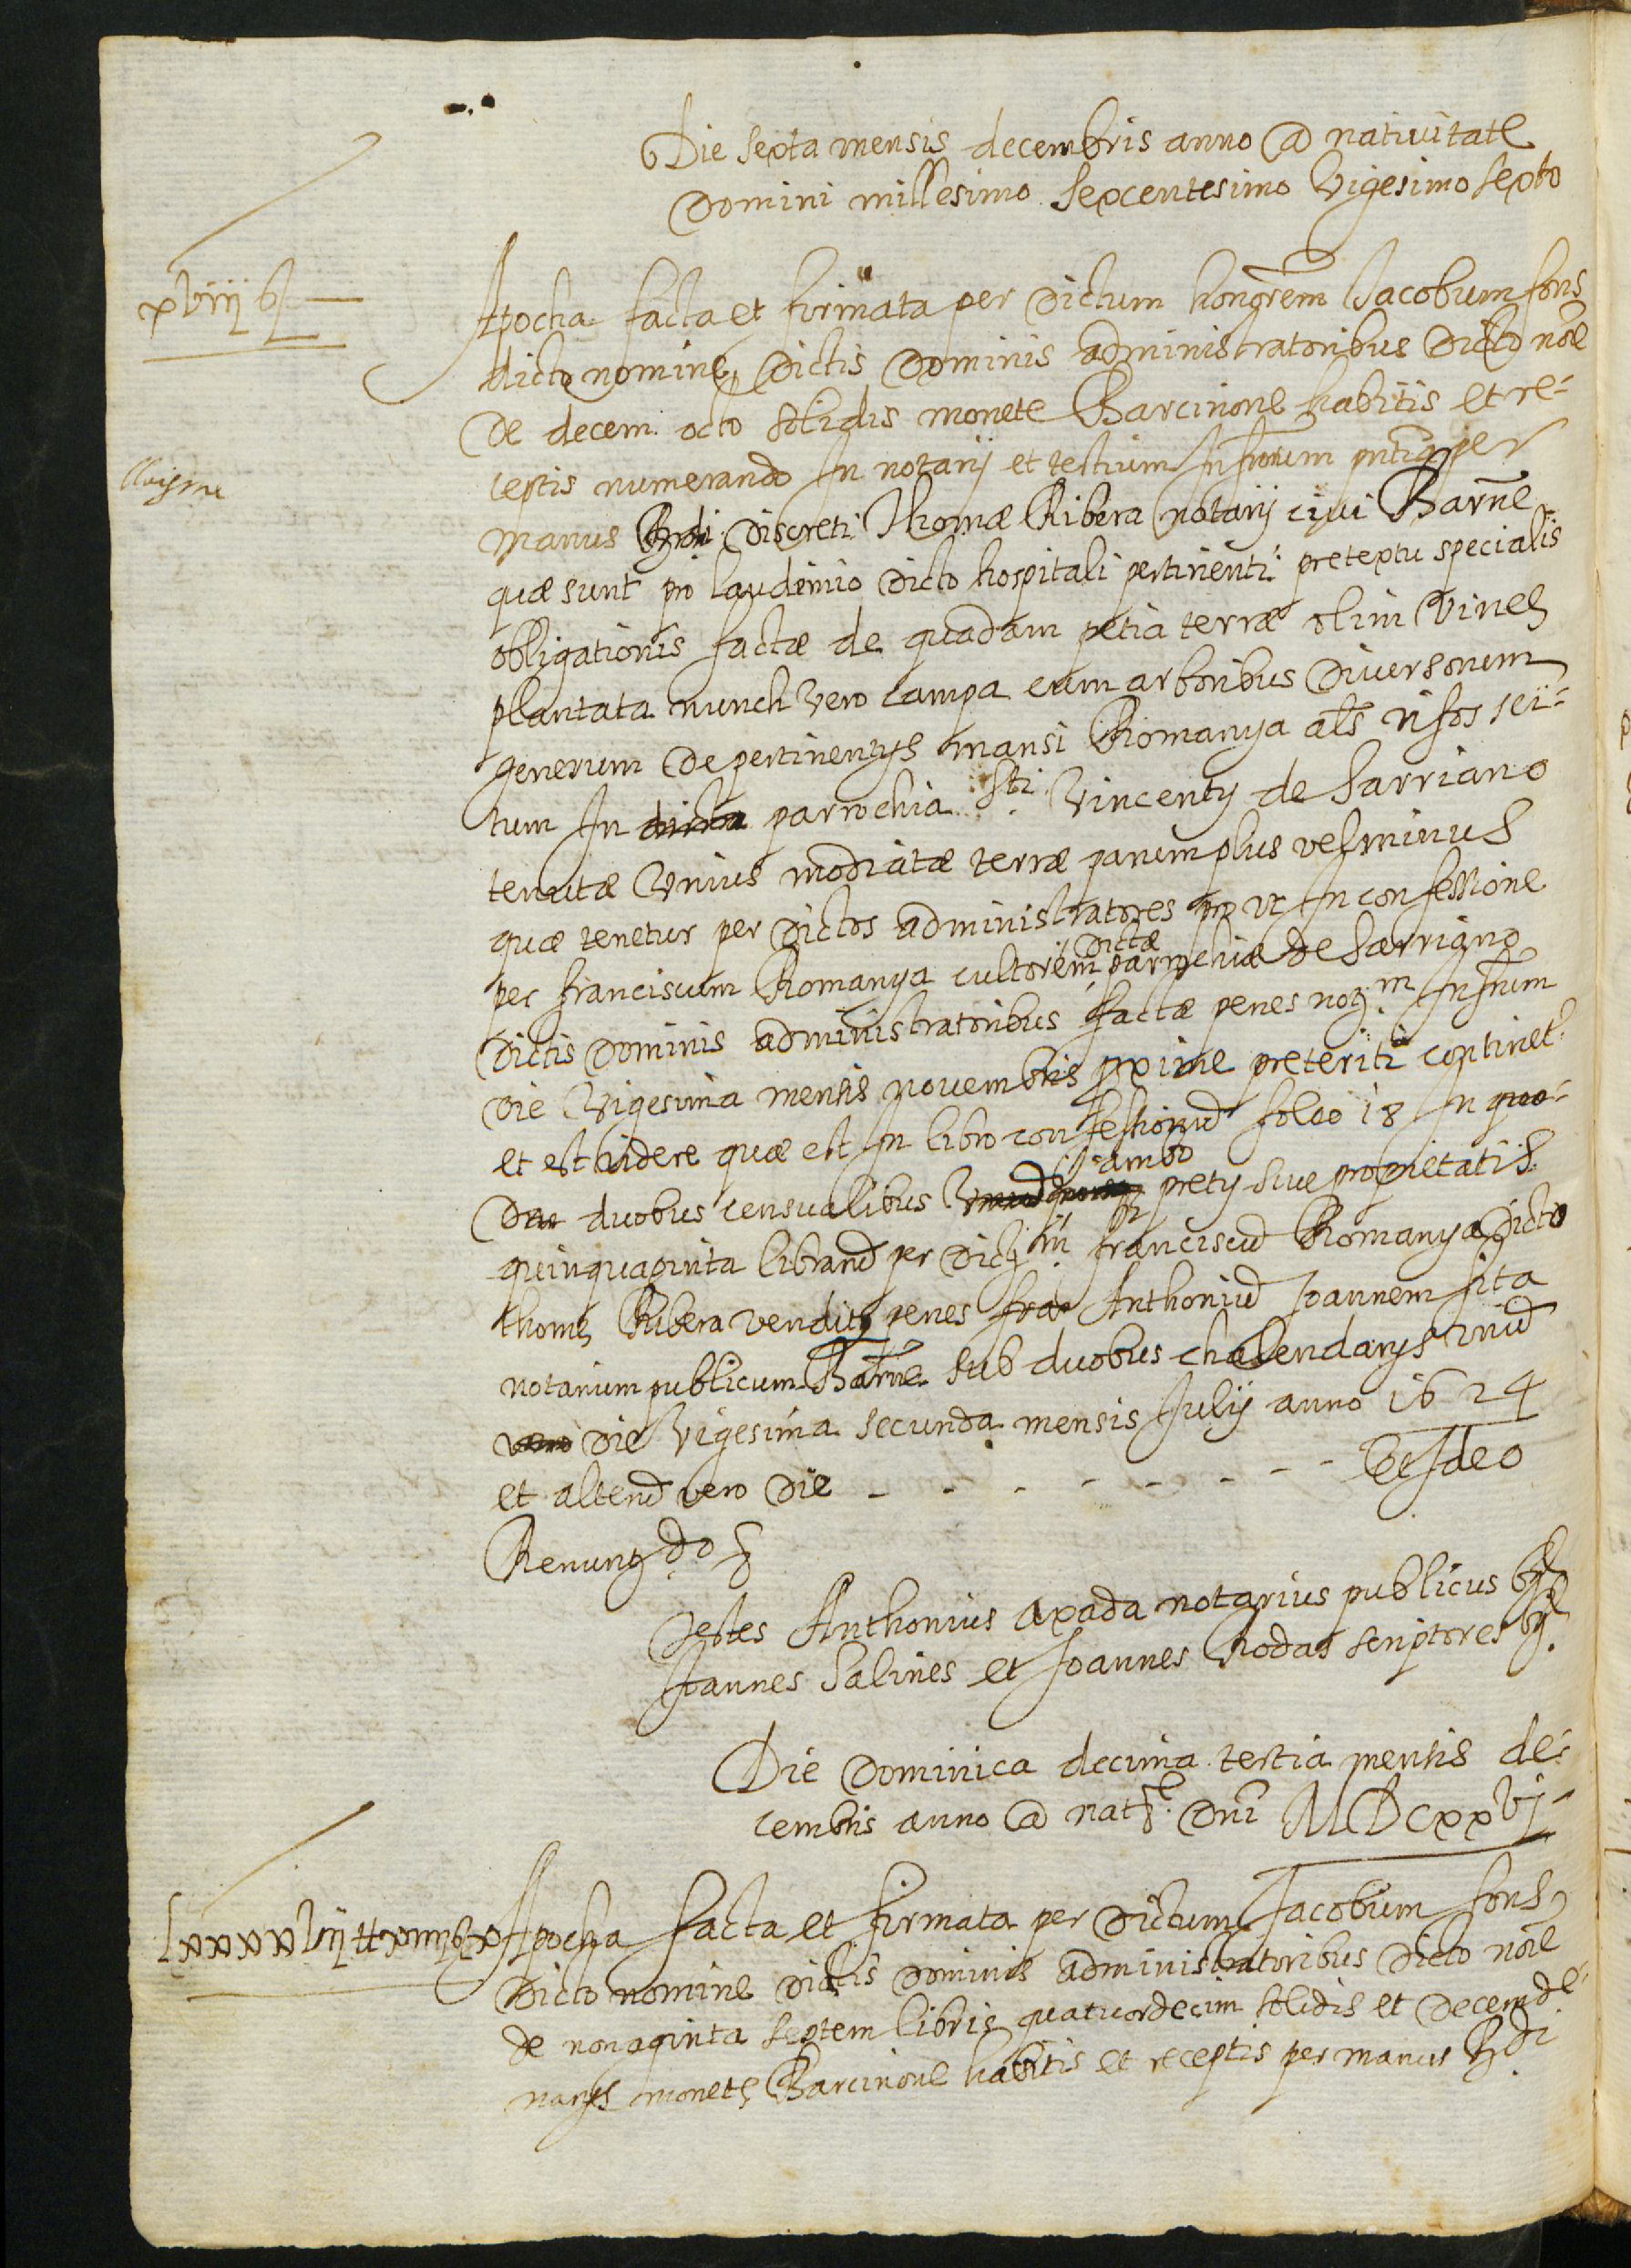 Die sexta mensis decembris anno a nativitate
Domini millesimo sexcentesimo vigesimo sexto
xviij ß
Apocha facta et firmata per dictum honorem Jacobum fons
dicto nomine dictis dominis administratoribus dicto noe
de decem octo solidis monete Barcinone habitis et re-
ceptis numerando In notarij et testium Infrum pntia per
lluisme
manus discreti Thomæ Ribera notarij civi Barne
quæ sunt pro laudimio dicto hospitali pertinenti pretextu specialis
obligationis factæ de quadam petia terræ olim vinea
plantata nunch vero campa cum arboribus diversorum
generum de pertinentijs mansi Romanya als risos sci-
tum In parrochia Sti Vincentij de Sarriano
tenutæ unius modiatæ terræ parum plus vel minus
quæ tenetur per dictos administratores pro ut In confessione
per franciscum Romanya cultorem dictæ parrochiæ de Sarriano
dictis dominis administratoribus factæ penes nom Infrum
die vigesima mensis novembris proxime preteriti continet
et est videre quæ est In libro confessionum foleo 18 In quo-
duobus censualibus ambo pretij sive proprietatis
quinquaginta librarum per dictum franciscum Romanya dicto
thome Ribera venditis penes Anthonium Joannem fita
notarium publicum Barne sub duobus chalendarijs unum
die vigesima secunda mensis Julij anno 1624
et alterum vero die - - - - - - - Et Ideo
Renuncdo &
Testes Anthonius axada notarius publicus
Joannes Salines et Joannes Rodas scriptores
Die dominica decima tertia mensis de-
cembris anno a nate dni MDCxxvj
Lxxxxvij ℔ xiiij ß x
Apocha facta et firmata per dictum Jacobum fons
dicto nomine dictis dominis administratoribus dicto noie
de nonaginta septem libris quatuordecim solidis et decem de-
narijs monete Barcinone habitis et receptis per manus Rdi